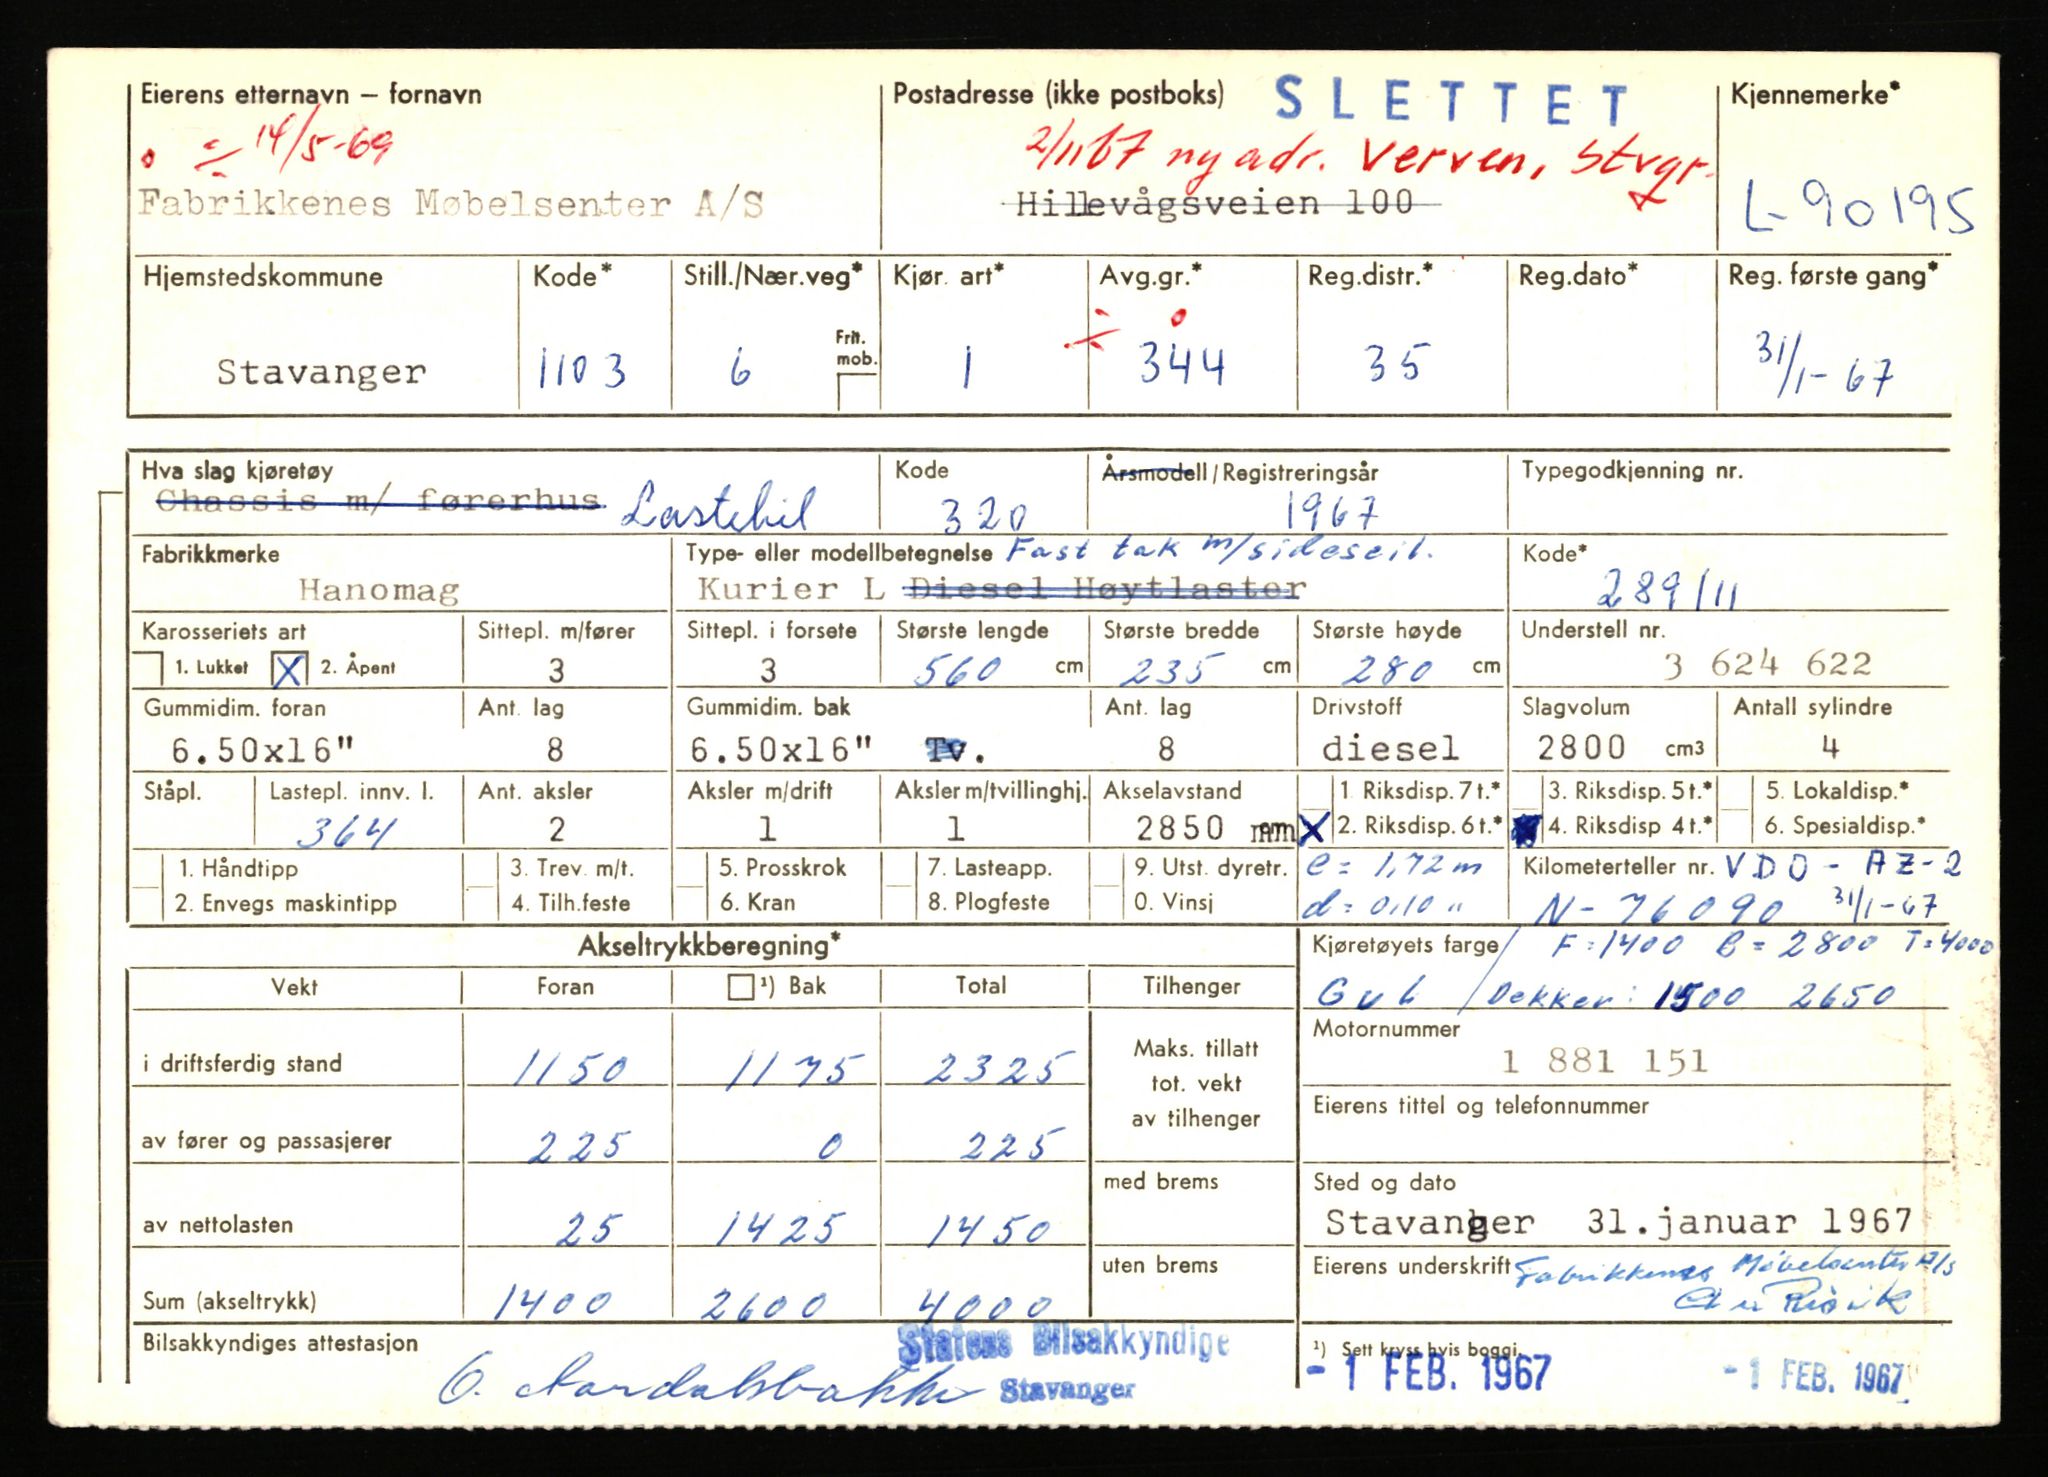 Eierens etternavn – fornavn
Postadresse (ikke postboks) SLETTET
Kjennemerke*
14/5-69
2/11 67 ny adr. Verven, Stvgr.
Fabrikkenes Møbelsenter A/S
Hillevågsveien 100
L-90195
Hjemstedskommune Kode* Still./Nær.veg* Kjør. art* Avg.gr.* Reg.distr.* Reg.dato* Reg. første gang*
Frit. mob.
Stavanger 1103 6 1 344 35 31/1-67
Hva slag kjøretøy Kode Årsmodell/Registreringsår Typegodkjenning nr.
Chassis m/ førerhus Lastebil 320 1967
Fabrikkmerke Type- eller modellbetegnelse Fast tak m/sideseil. Kode*
Hanomag Kurier L Diesel Høytlaster 289/11
Karosseriets art Sittepl. m/fører Sittepl. i forsete Største lengde Største bredde Største høyde Understell nr.
1. Lukket X 2. Åpent 3 3 560 cm 235 cm 280 cm 3 624 622
Gummidim. foran Ant. lag Gummidim. bak Ant. lag Drivstoff Slagvolum Antall sylindre
6.50x16" 8 6.50x16" Tv. 8 diesel 2800 cm3 4
Ståpl. Lastepl. innv. l. Ant. aksler Aksler m/drift Aksler m/tvillinghj. Akselavstand 1. Riksdisp. 7 t.* 3. Riksdisp. 5 t.* 5. Lokaldisp.*
364 2 1 1 2850 mm X 2. Riksdisp. 6 t.* 4. Riksdisp 4 t.* 6. Spesialdisp.*
1. Håndtipp 3. Trev. m/t. 5. Prosskrok 7. Lasteapp. 9. Utst. dyretr. e = 1,72 m Kilometerteller nr. VDO - AZ-2
2. Envegs maskintipp 4. Tilh.feste 6. Kran 8. Plogfeste 0. Vinsj d = 0,10 " N-76090 31/1-67
Akseltrykkberegning* Kjøretøyets farge / F=1400 B=2800 T=4000
Vekt Foran ¹) Bak Total Tilhenger Gul / Dekker: 1500 2650
Motornummer
i driftsferdig stand 1150 1175 2325 Maks. tillatt tot. vekt av tilhenger 1 881 151
Eierens tittel og telefonnummer
av fører og passasjerer 225 0 225
med brems Sted og dato
av nettolasten 25 1425 1450 Stavanger 31.januar 1967
uten brems Eierens underskrift Fabrikkenes Møbelsenter A/S
Sum (akseltrykk) 1400 2600 4000
Bilsakkyndiges attestasjon Statens Bilsakkyndige ¹) Sett kryss hvis boggi.
Stavanger - 1 FEB. 1967 - 1 FEB. 1967